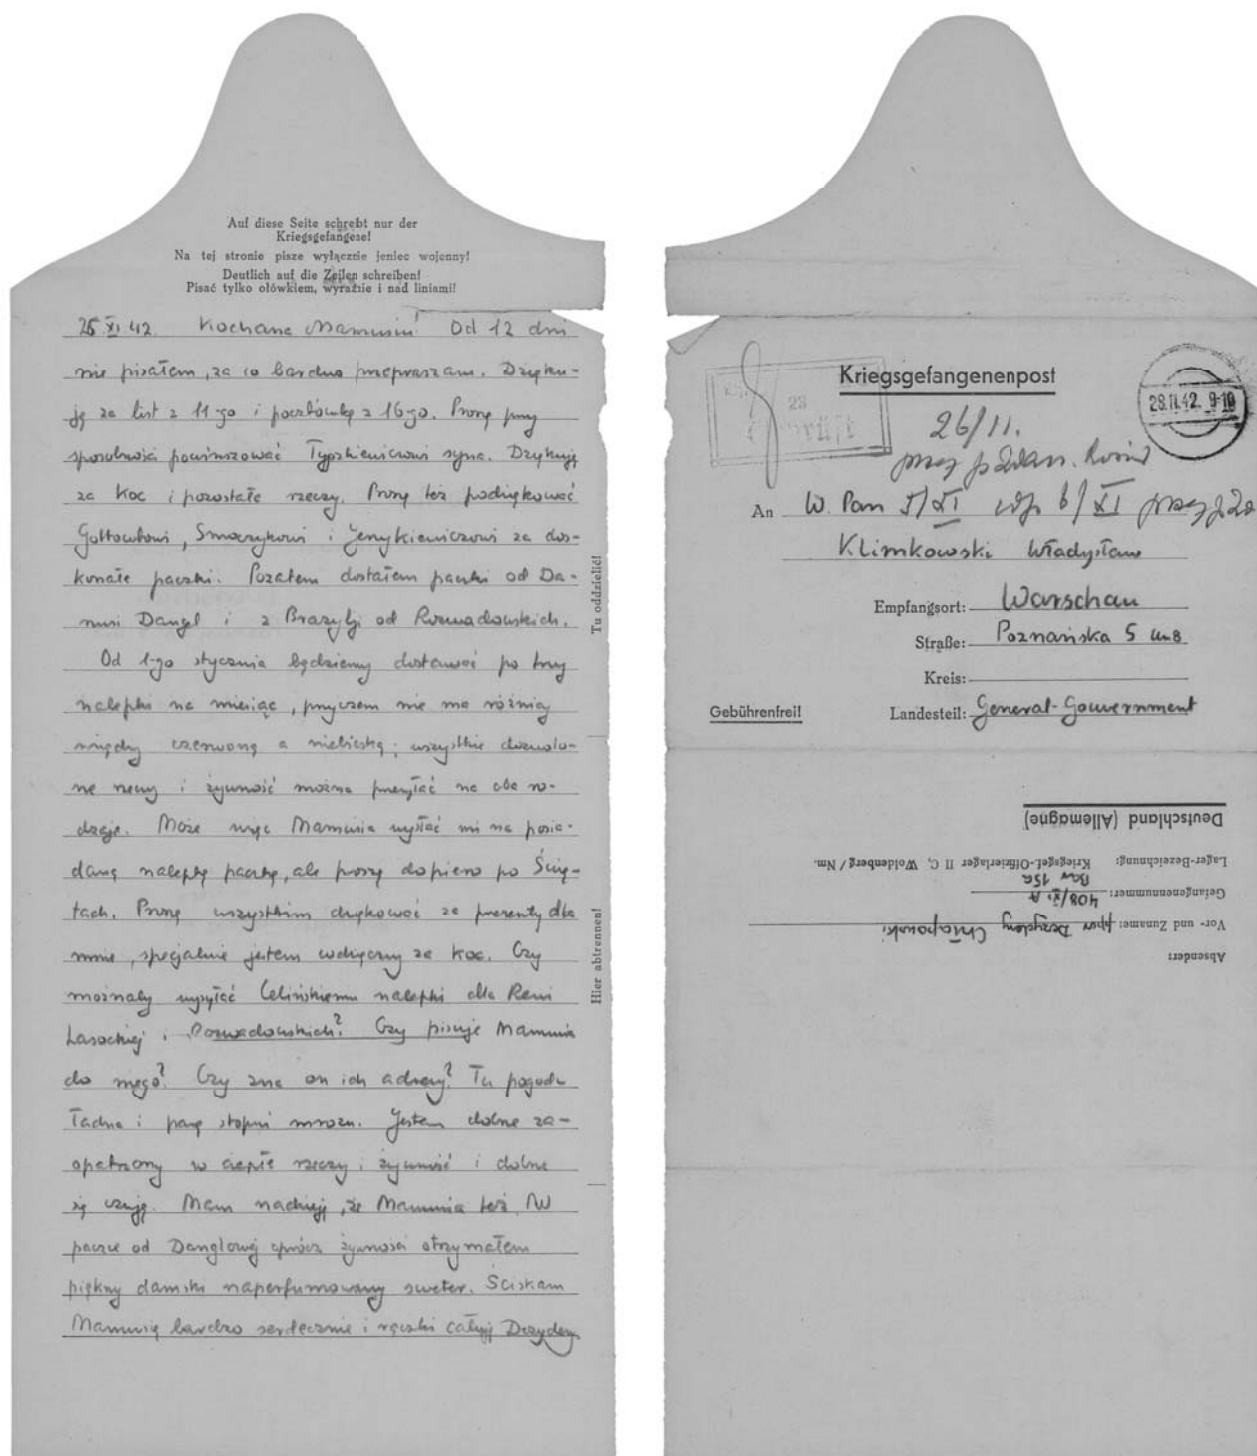 Auf diese Seite schrebt nur der
Kriegsgefangese!
Na tej stronie pisze wyłącznie jeniec wojenny!
Deutlich auf die Zeilen schreiben!
Pisać tylko ołówkiem, wyraźnie i nad liniami!
25 XI 42. Kochana Mamusiu! Od 12 dni
nie pisałem, za co bardzo przepraszam. Dzięku-
ję za list z 11-go i pocztówkę z 16-go. Proszę przy
sposobności powinszować Tyszkiewiczowi syna. Dziękuję
za koc i pozostałe rzeczy. Proszę też podziękować
Gottowtowi, Smoczykowi i Jenykiewiczowi za dos-
konałe paczki. Pozatem dostałem paczki od Da-
nusi Dangel i z Brazylji od Rozwadowskich.
Od 1-go stycznia będziemy dostawać po trzy
nalepki na miesiąc, przyczem nie ma różnicy
między czerwoną a niebieską; wszystkie dozwolo-
ne rzeczy i żywność można przesyłać na oba ro-
dzaje. Może więc Mamusia wysłać mi na posia-
daną nalepkę paczkę, ale proszę dopiero po Świę-
tach. Proszę wszystkim dziękować za prezenty dla
mnie, specjalnie jestem wdzięczny za koc. Czy
możnaby wysyłać Celińskiemu nalepki dla Reni
Lasockiej i Rozwadowskich? Czy pisuje Mamusia
do niego? Czy zna on ich adresy? Tu pogoda
ładna i parę stopni mrozu. Jestem dobrze za-
opatrzony w ciepłe rzeczy i żywność i dobrze
się czuję. Mam nadzieję, że Mamusia też. W
paczce od Danglowej oprócz żywności otrzymałem
piękny damski naperfumowany sweter. Ściskam
Mamusię bardzo serdecznie i rączki całuję Dezydery
Tu oddzielić!
Hier abtrennen!
Kriegsgefangenenpost
28
geprüft
28.11.42. 9-10
26/11.
przez p.
An W. Pan 5/XI 6/XI przez
Klimkowski Władysław
Empfangsort: Warschau
Straße: Poznańska 5 m 8
Kreis:
Gebührenfrei!
Landesteil: General-Gouvernment
Deutschland (Allemagne)
Lager-Bezeichnung: Kriegsgef.-Offizierlager II C, Woldenberg / Nm.
Bar 15a
Gefangenennummer: 408/XI A
Vor- und Zuname: ppor Dezydery Chłapowski
Absender: